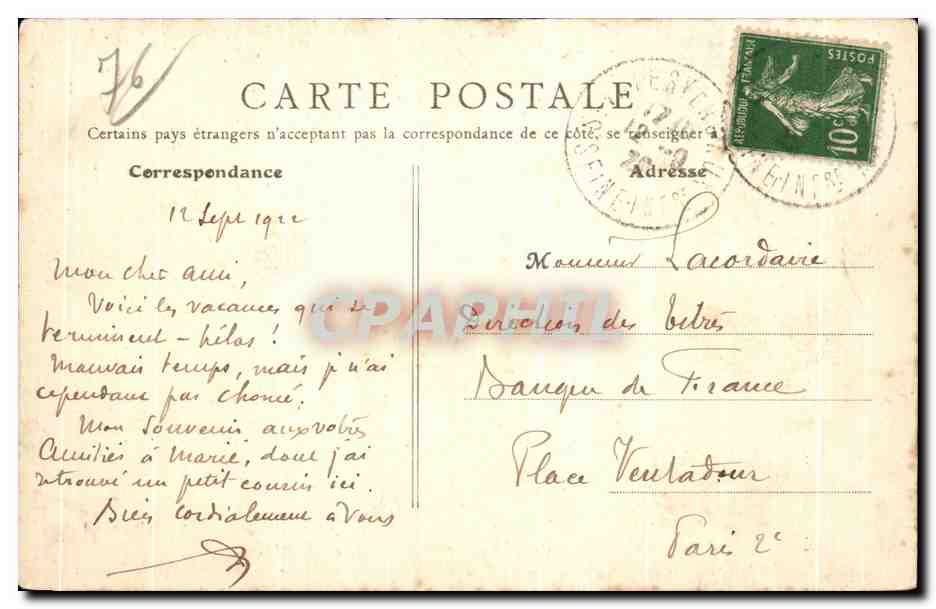 76
CARTE POSTALE
Certains pays étrangers n'acceptant pas la correspondance de ce côté, se renseigner à
Correspondance
Adresse
REPUBLIQUE FRANÇAISE
POSTES
10c
12 Sept 1922
Mon cher ami,
Voici les vacances qui se
terminent – hélas !
Mauvais temps, mais je n'ai
cependant pas chômé.
Mon souvenir aux vôtres
Amitiés à Marie, dont j'ai
retrouvé un petit cousin ici.
Bien cordialement à vous
Monsieur Lacordaire
Direction des titres
Banque de France
Place Ventadour
Paris 2e
CPAPHIL